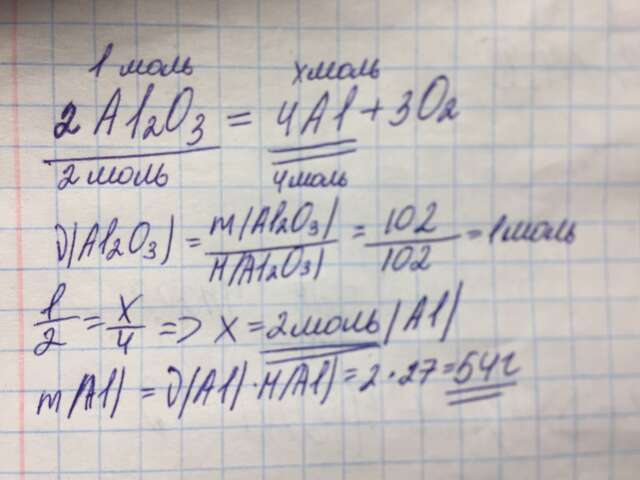 1 моль х моль
2Al₂O₃ = 4Al + 3O₂
2 моль 4 моль
ν(Al₂O₃) = m(Al₂O₃)/M(Al₂O₃) = 102/102 = 1 моль
1/2 = x/4 => x = 2 моль (Al)
m(Al) = ν(Al)·M(Al) = 2·27 = 54г